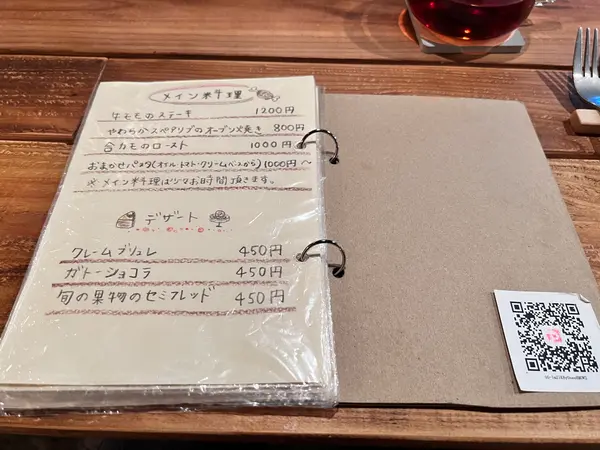 メイン料理
牛モモのステーキ 1200円
やわらかスペアリブのオーブン焼き 800円
合カモのロースト 1000円
おまかせパスタ(オイル・トマト・クリームベースから) 1000円〜
※メイン料理は少々お時間頂きます。
デザート
クレームブリュレ 450円
ガトーショコラ 450円
旬の果物のセミフレッド 450円